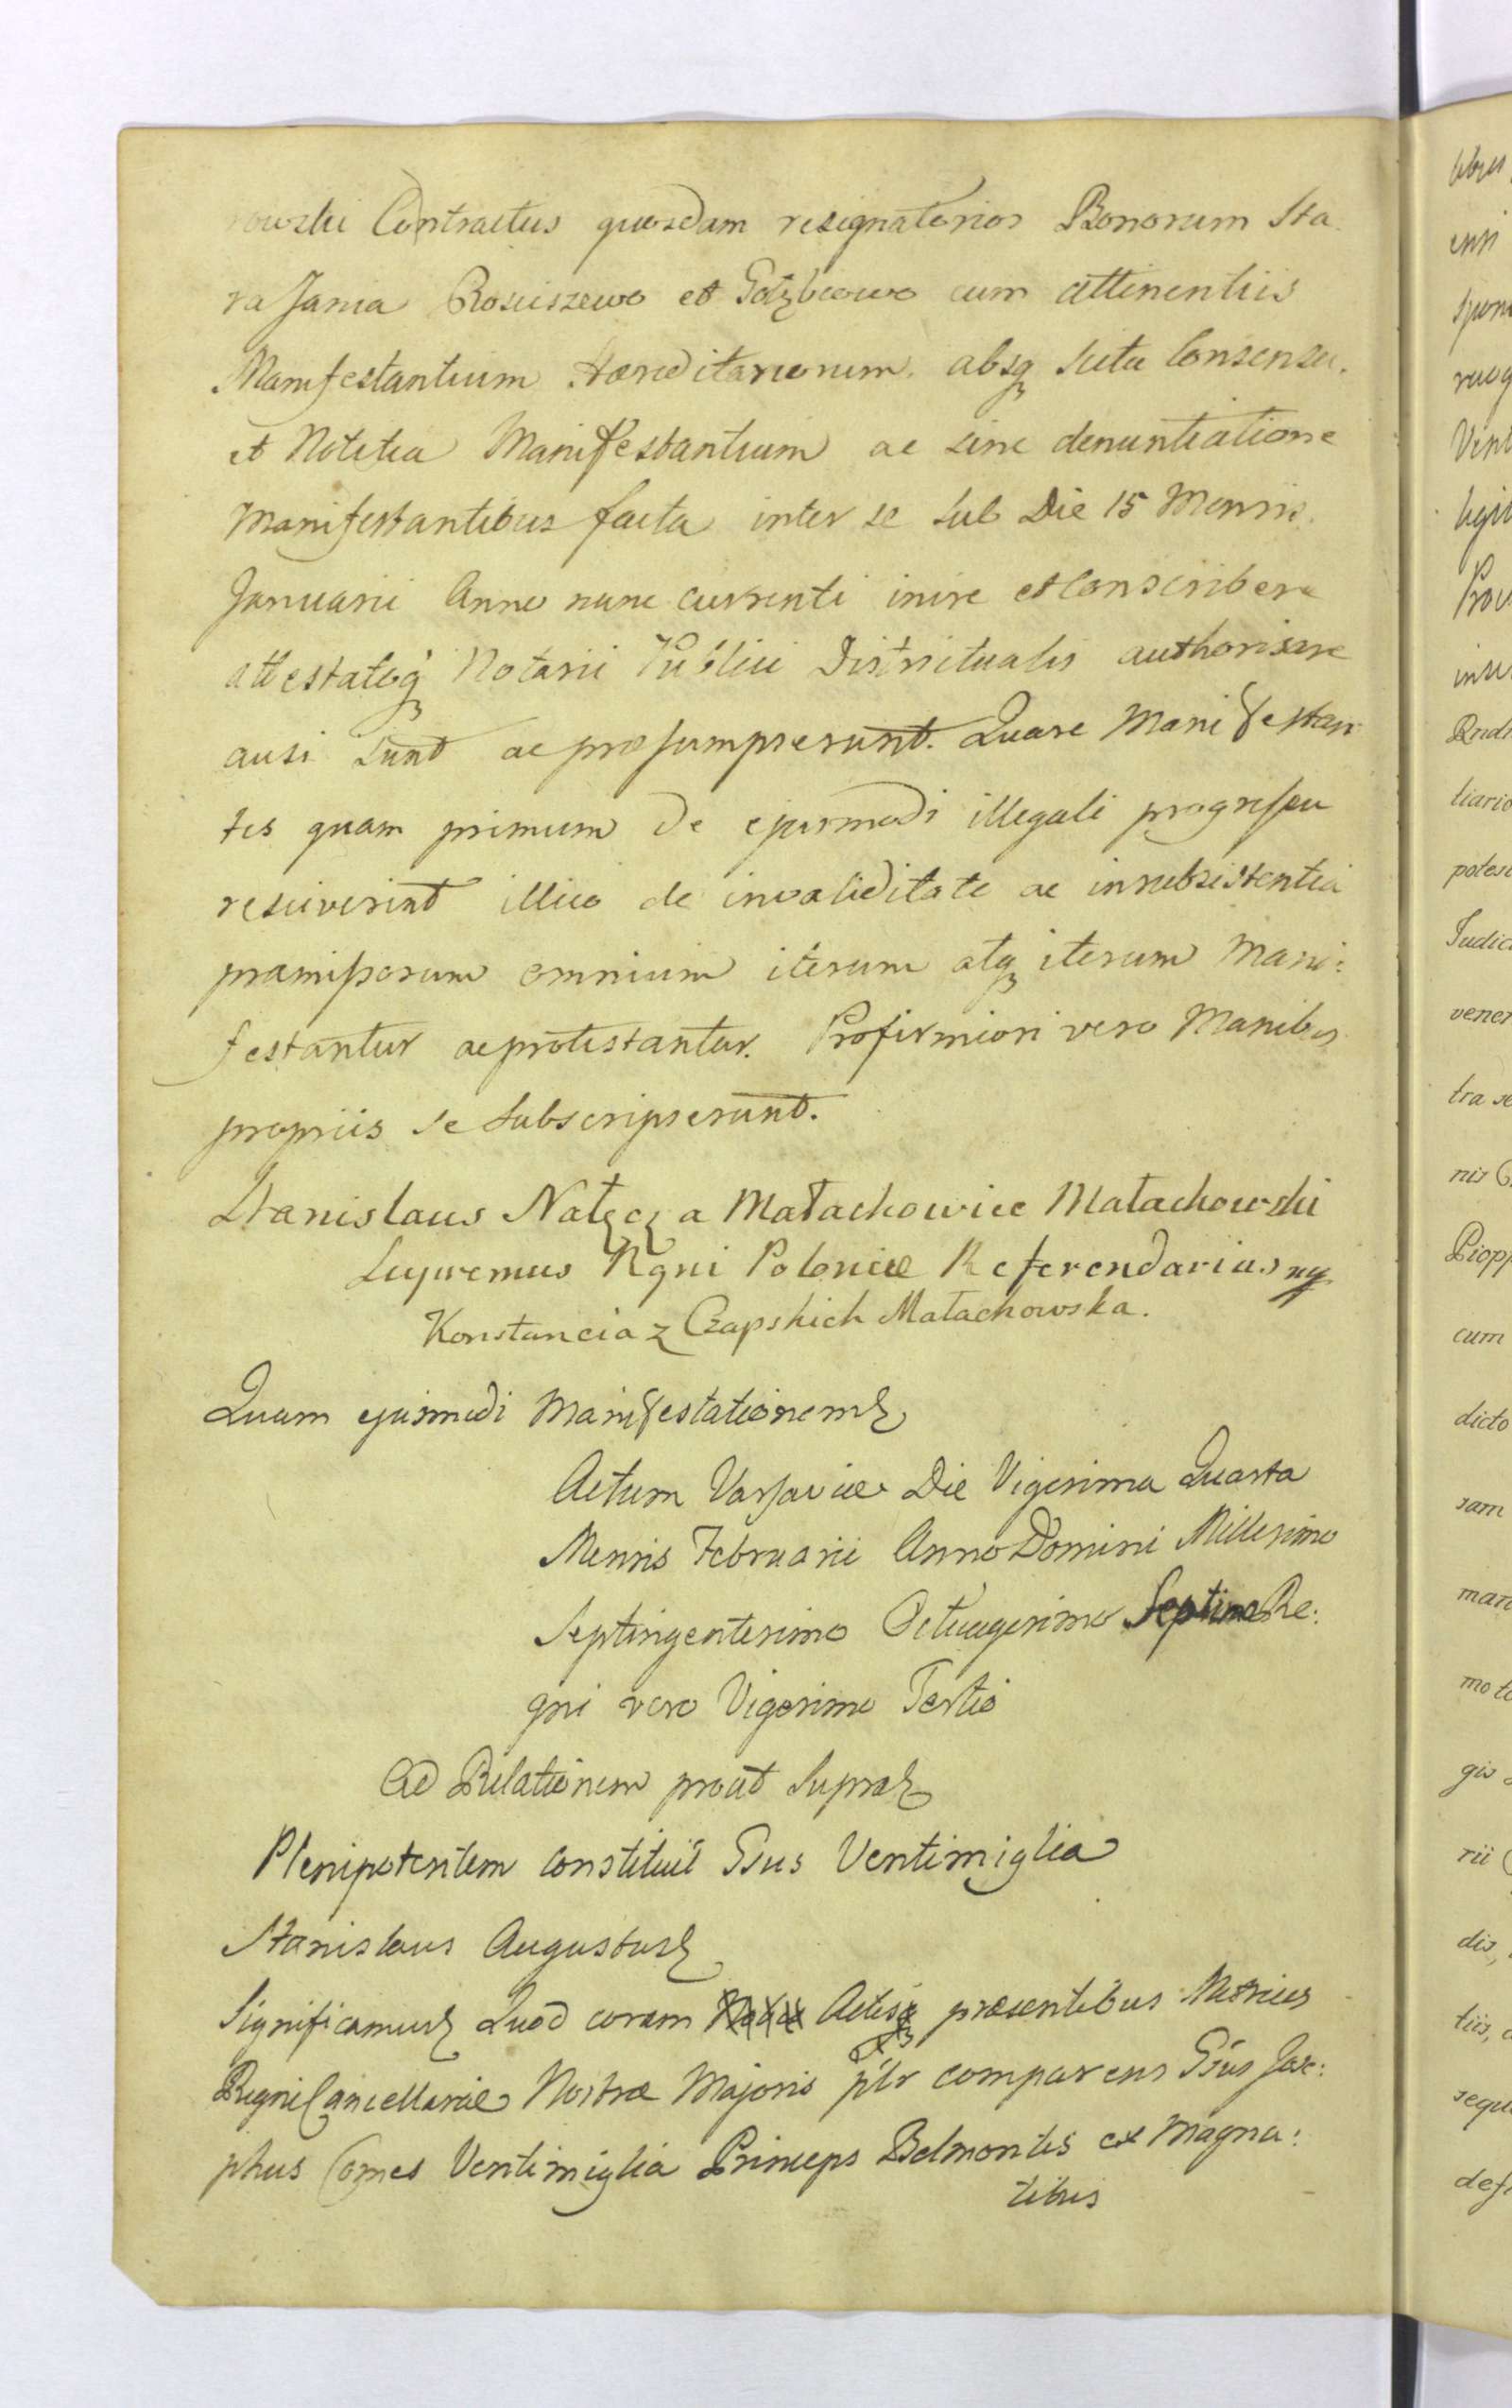 rowski Contractus quosdam resignatorios Bonorum Sta
ra Jania Rosciszewo et Gołębiewo cum attinentiis
Manifestantium Hæreditariorum absq̃ scitu Consensu.
et Notitia Manifestantium ac sine denuntiatione
Manifestantibus facta inter se sub Die 15 Mensis
Januarii Anno nunc currenti inire et Conscribere
attestatioq̃ Notarii Publici Districtualis authorisare
ausi sunt ac præsumpserunt. Quare Manifestan
tes quam primum de ejusmodi illegali progressu
resciverint illico de invaliditate ac insubsistentia
præmissorum omnium iterum atq̃ iterum Mani:
festantur ac protestantur. Pro firmiori vero Manibus
propriis se Subscripserunt.
Stanislaus Nałęcz a Małachowice Małachowski
Supremus Rgni Poloniæ Referendarius mp
Konstancia z Czapskich Małachowska.
Quam ejusmodi Manifestationem
Actum Varsaviæ Die Vigesima Quarta
Mensis Februarii Anno Domini Millesimo
Septingentesimo Octuagesimo Septimo Re:
gni vero Vigesimo Tertio
Ad Relationem prout Supra
Plenipotentem constituit Gsus Ventimiglia
Stanislaus Augustus
Significamus Quod coram Actisq̃ præsentibus Metrices
Regni Cancellariæ Nostræ Majoris plr comparens Gsus Jose:
phus Comes Ventimiglia Princeps Belmontis ex Magna:
tibus
libus
spon
Vint
potest
Judic
vener
tra se
nis
Piopp
cum
dicto
sam
mo
gis
rii
dis,
tiis,
sequ
def